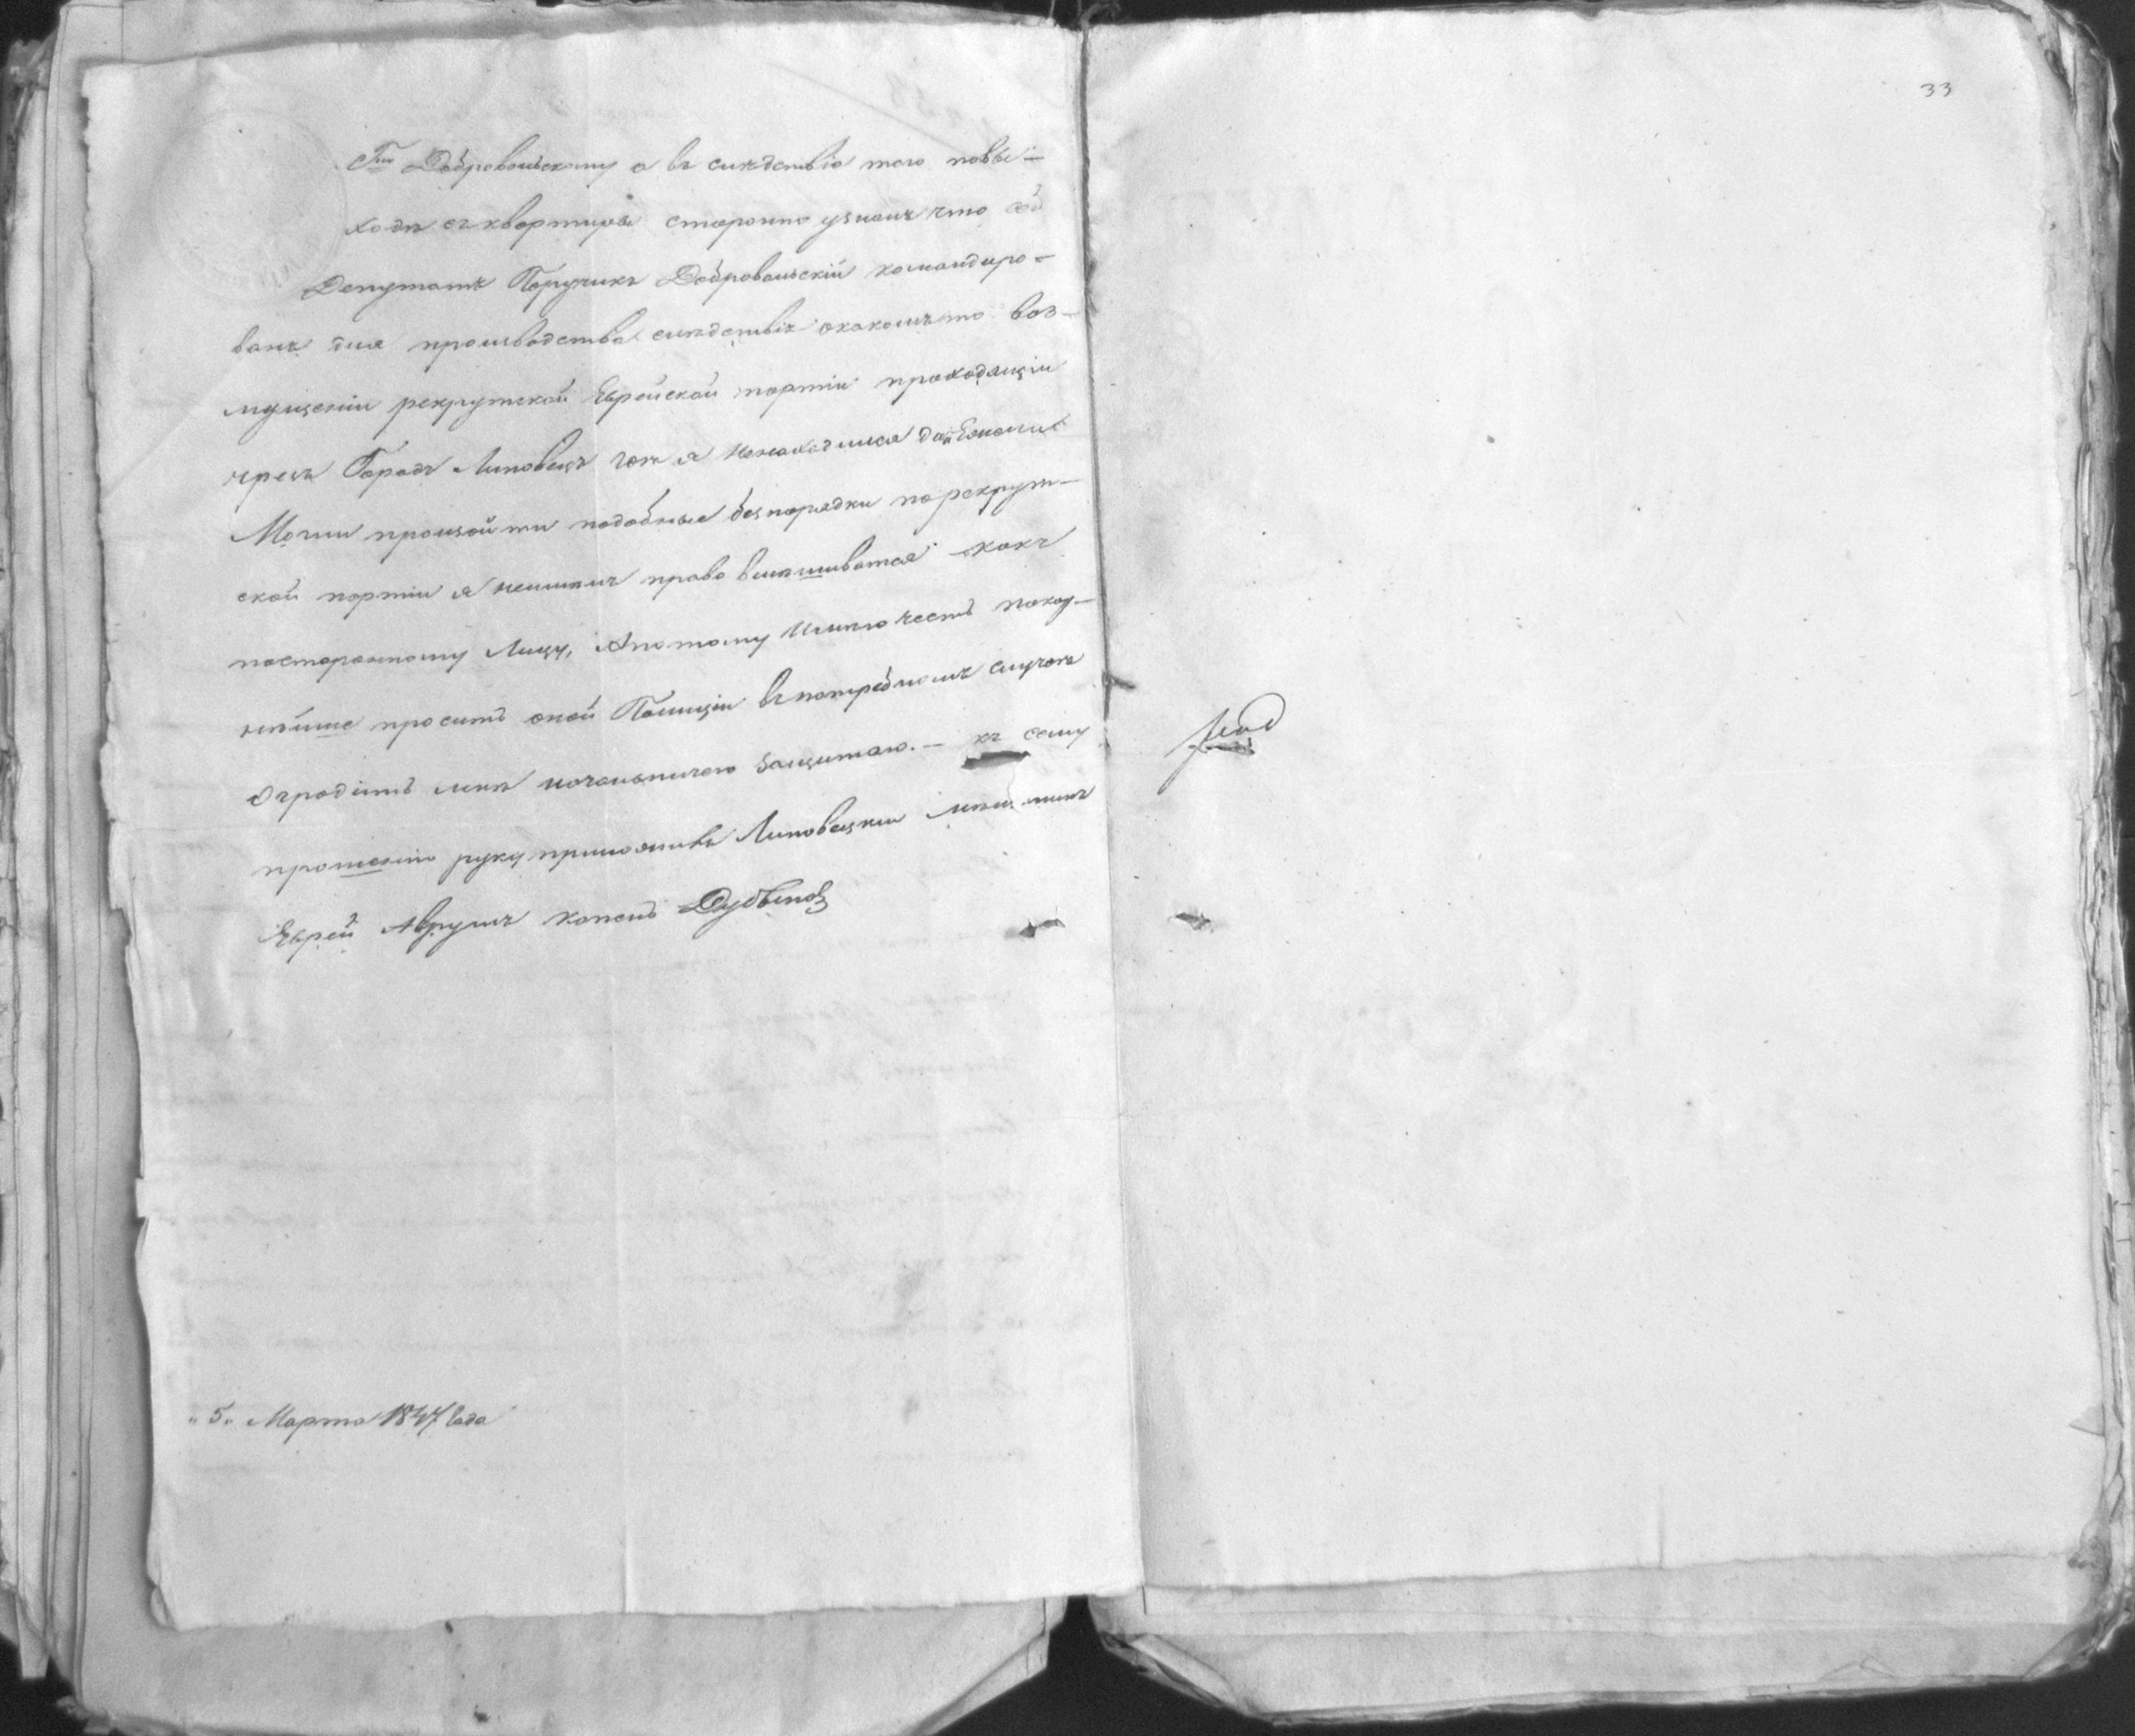 33
Гну Добровольскому а въ слѣдствіе того повы-
ходѣ съ квартиры сторонно узналъ что сей
Депутатъ Поручикъ Добровольскій командиро-
ванъ для производства слѣдствія окакомъ то воз-
мущеніи рекрутской Еврейской партіи проходящіи
чрезъ Городъ Липовецъ гдѣ я ненаходился
Могли произойти подобные безпорядки порекрут-
ской партіи я неимѣлъ право вмѣшиватся какъ
постороннему Лицу, Апотому Имѣю честь покор-
нѣйше просить оной Полиціи въ потребномъ случаѣ
Оградить мнѣ начальничею Защитаю. — къ сему
прошенію руку приложилъ Липовецкий мѣщанинъ
Еврей Аврумъ
"5" Марта 1847 Года